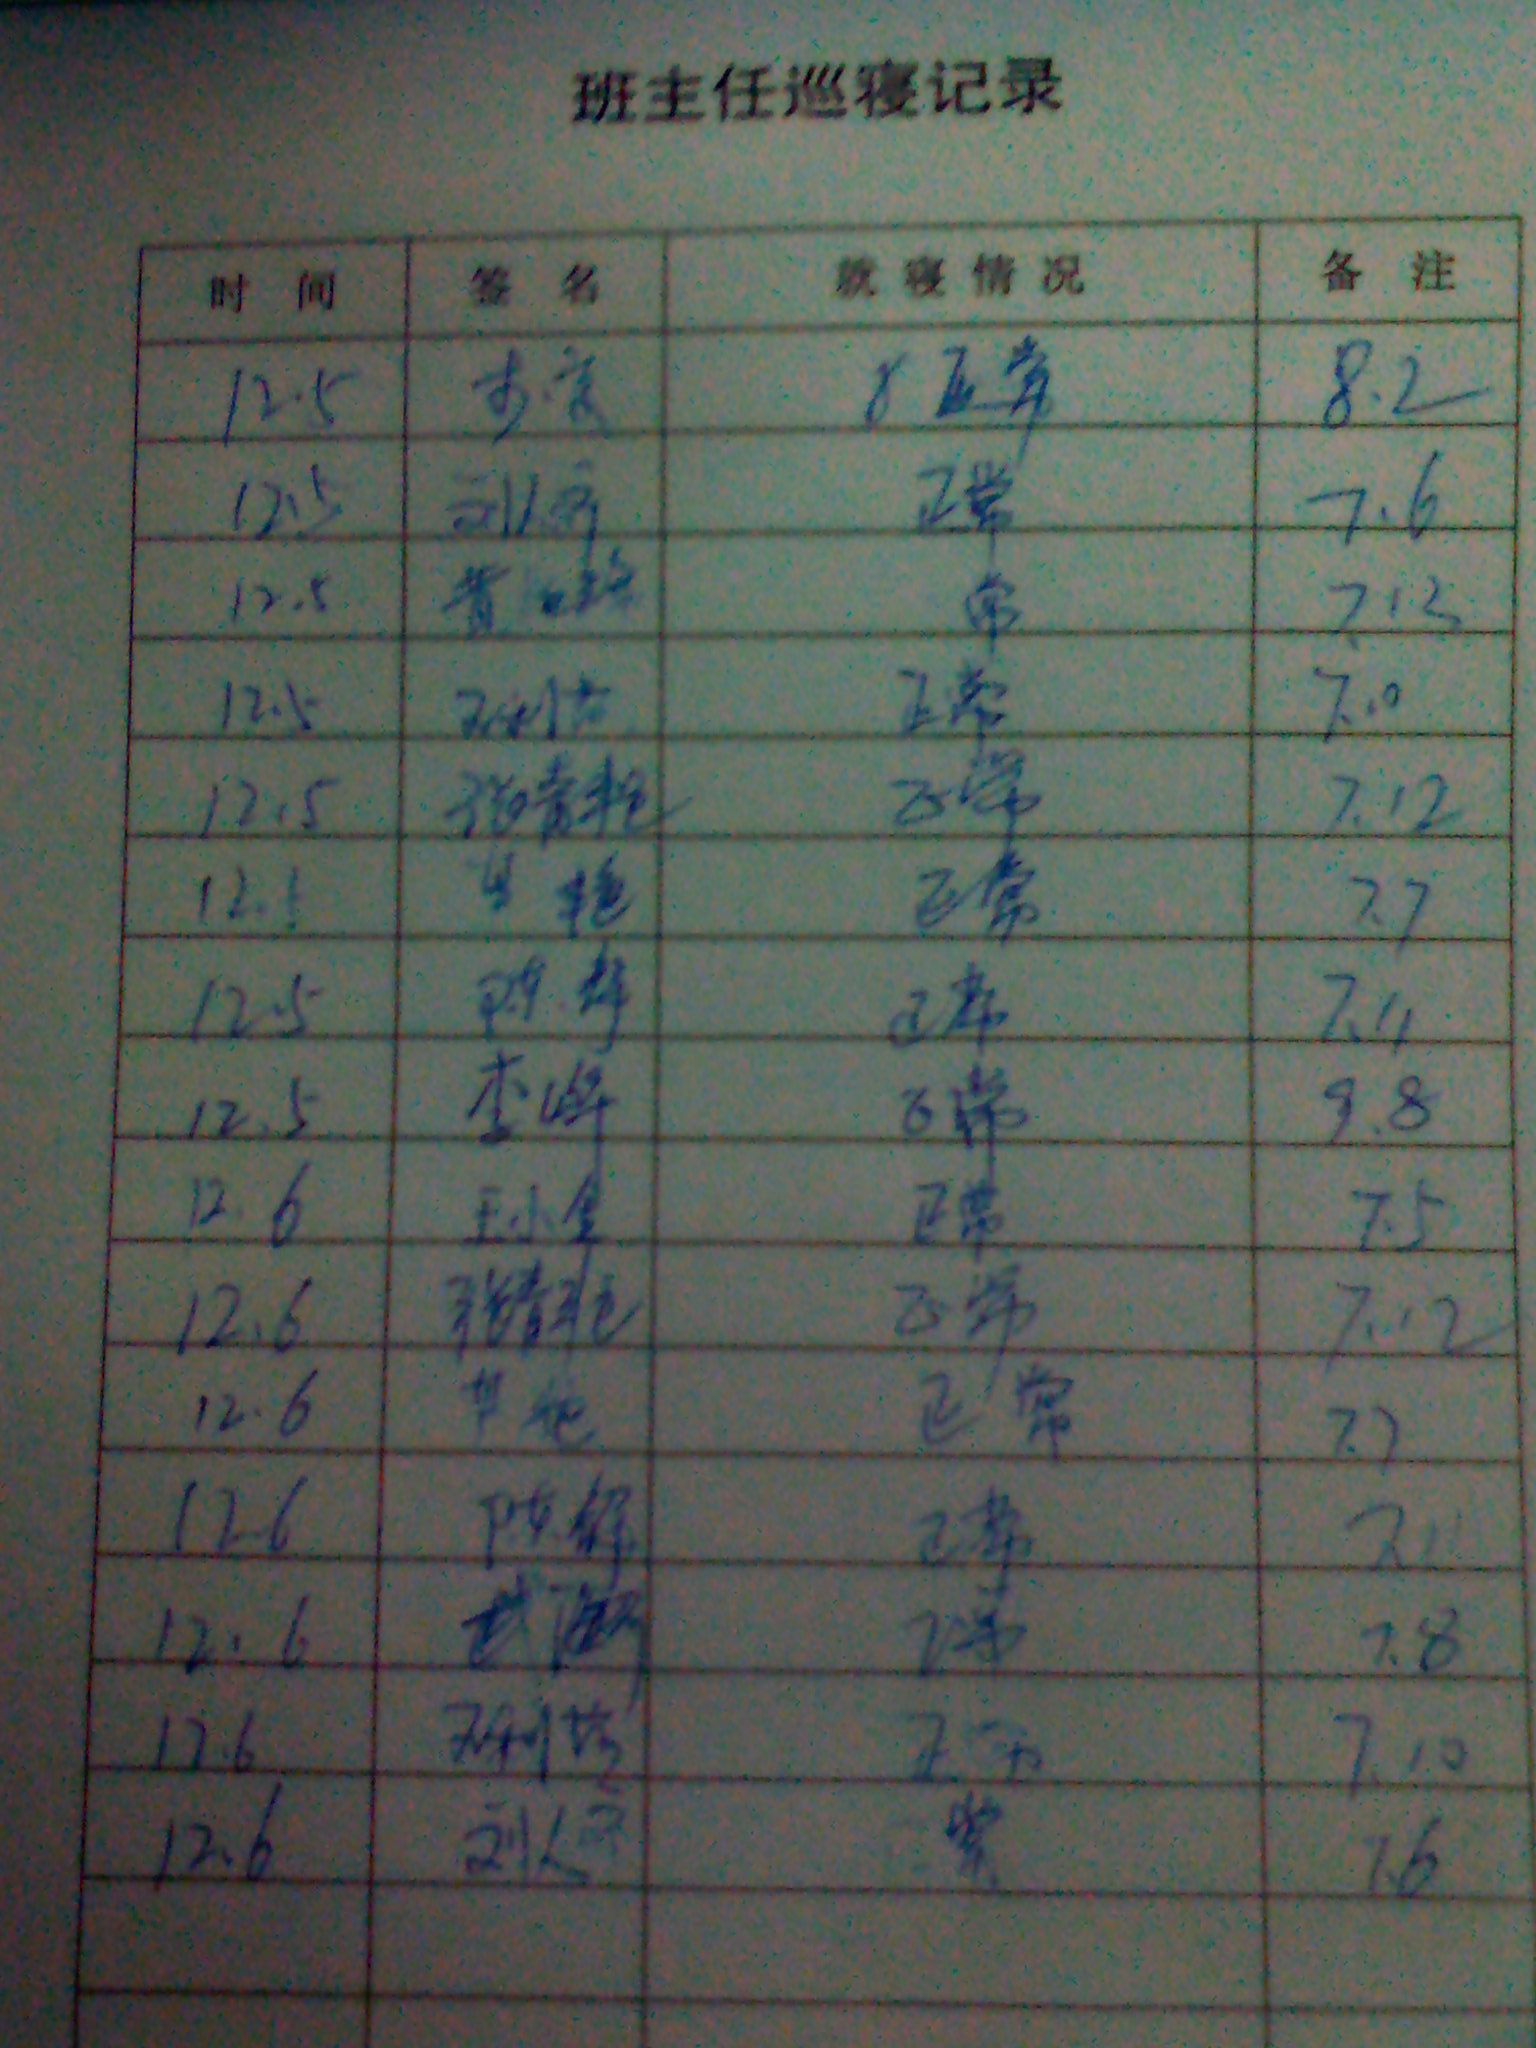 班主任巡寝记录
时间 签名 就寝情况 备注
12.5 正常 8.2
12.5 正常 7.6
12.5 常 7.13
12.5 正常 7.10
12.5 张青艳 正常 7.12
12.5 正常 7.7
12.5 陈辉 正常 7.11
12.5 李峰 正常 9.8
12.6 王小金 正常 7.5
12.6 张青艳 正常 7.12
12.6 正常 7.7
12.6 陈辉 正常 7.11
12.6 正常 7.8
12.6 正常 7.10
12.6 7.6